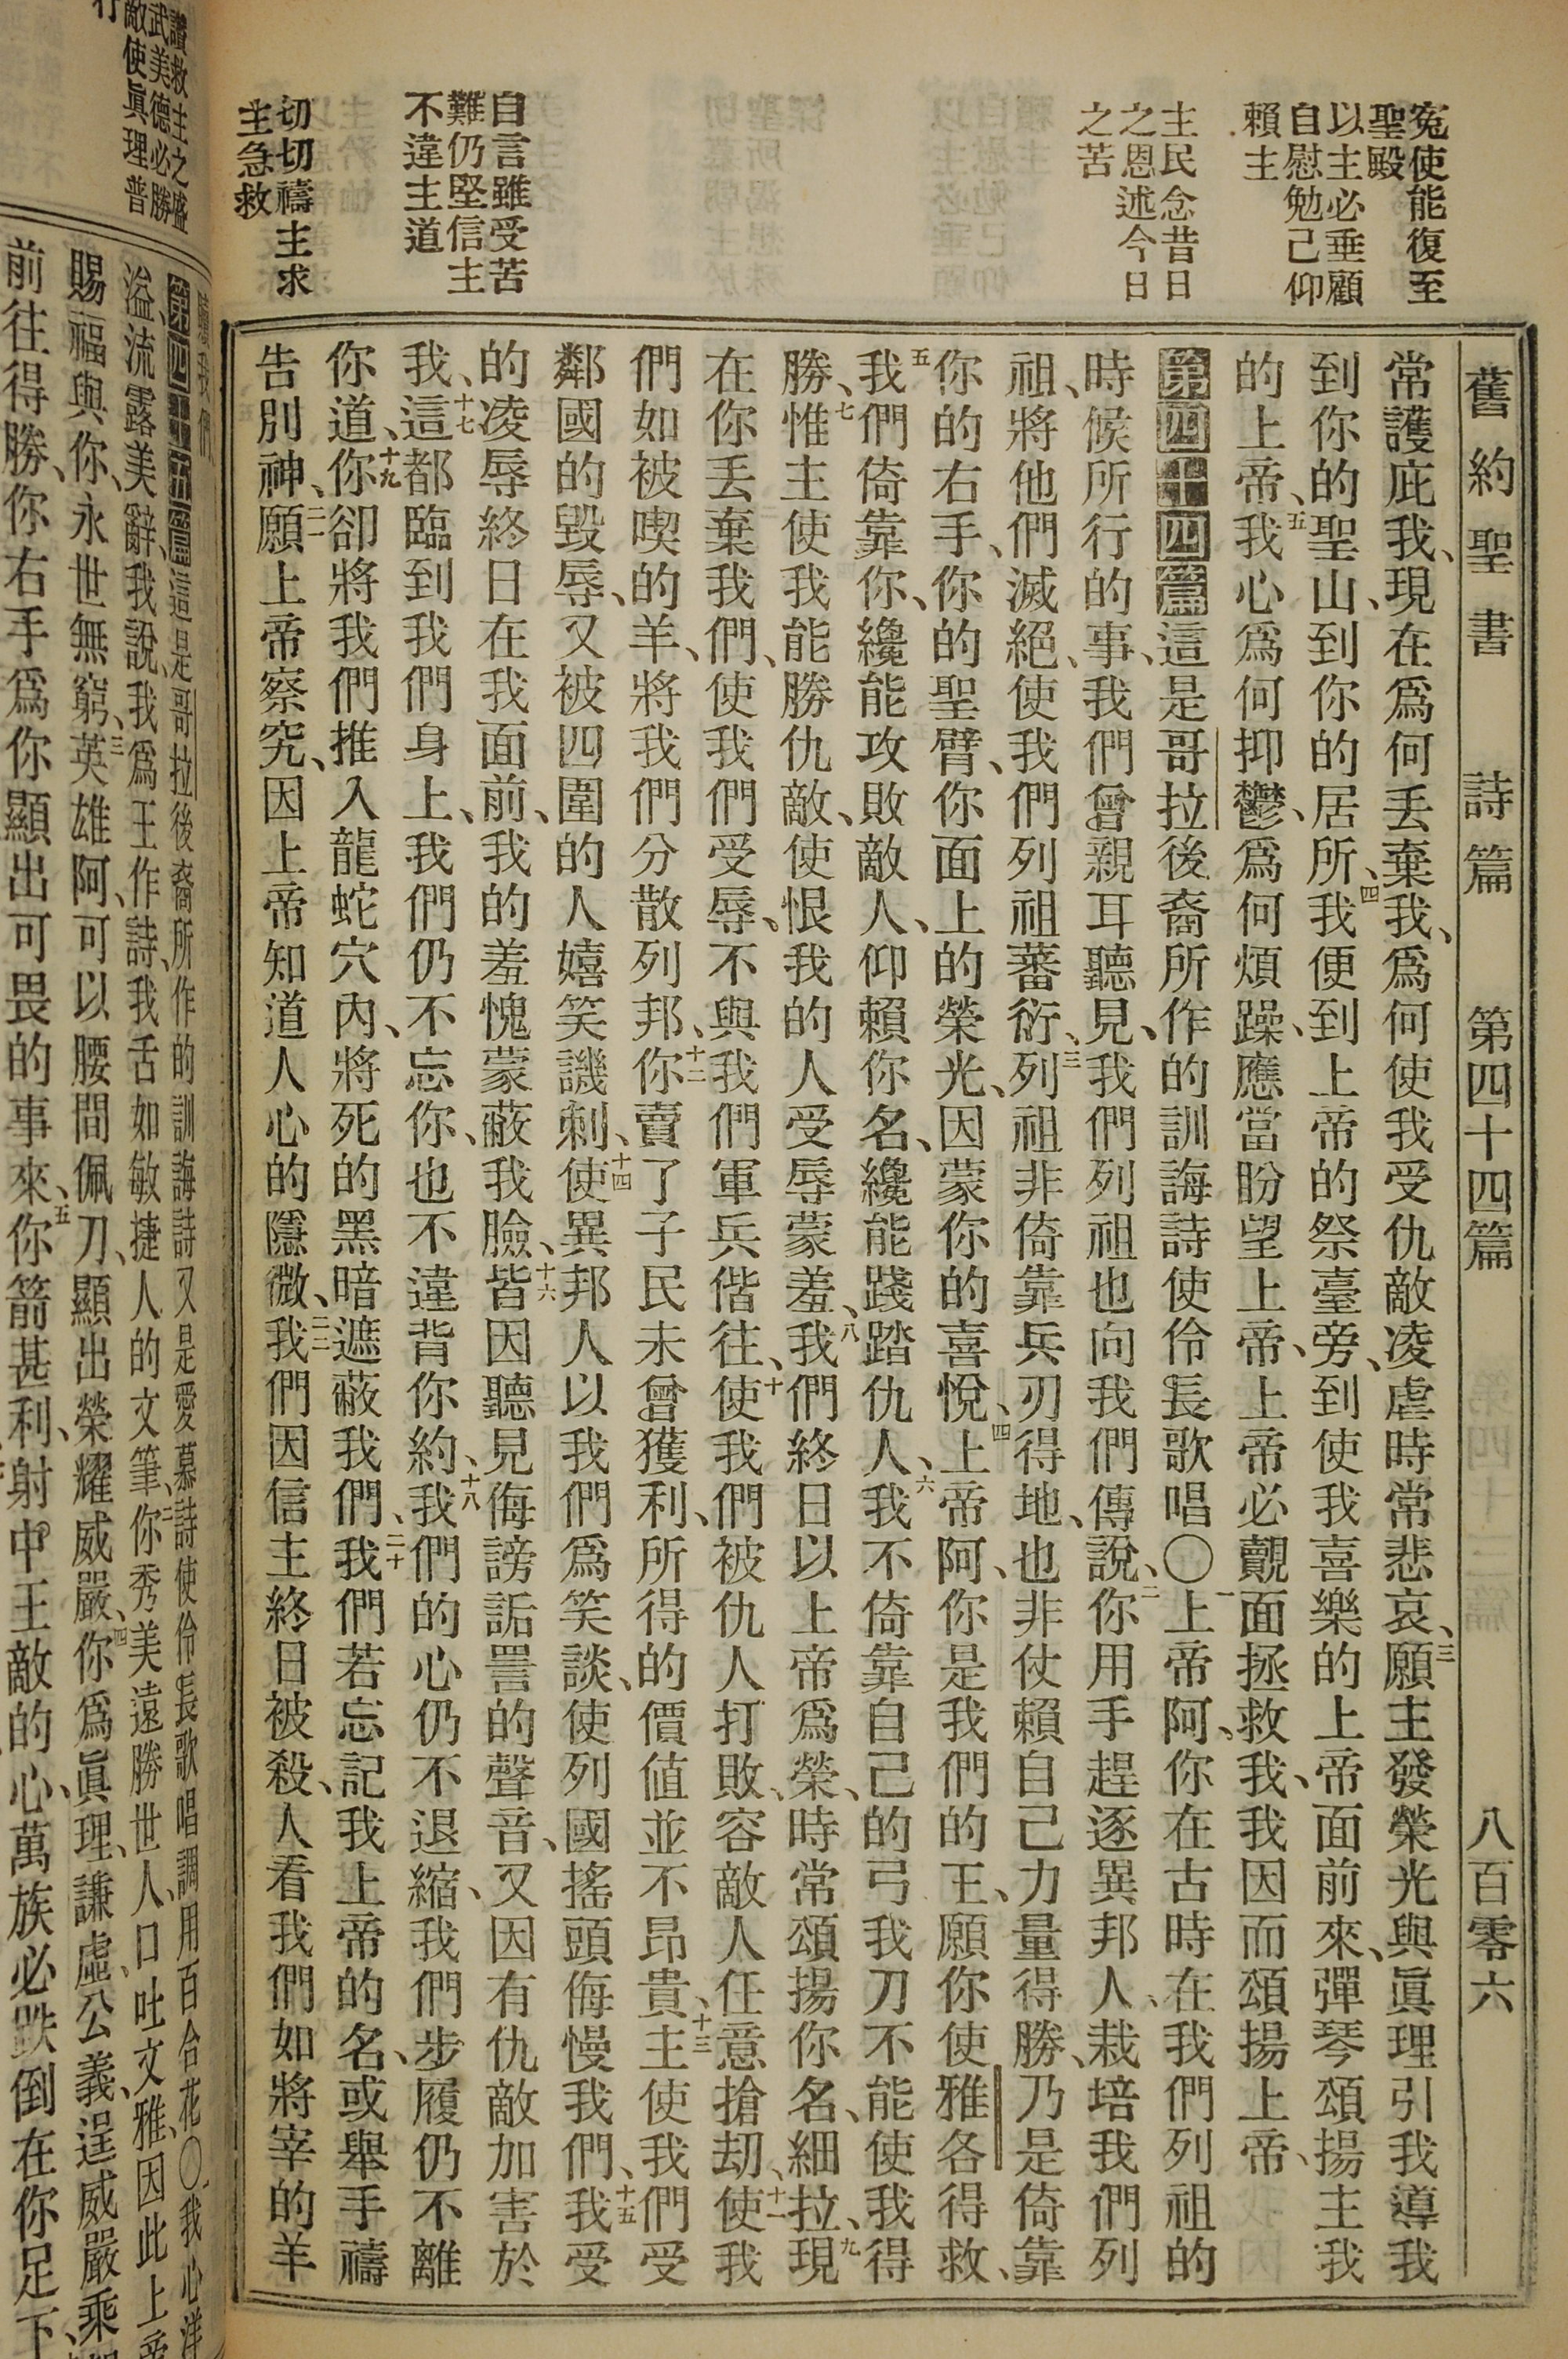 舊約聖書 詩篇 第四十四篇 八百零六
冤使能復至
聖殿
以主必垂顧
自慰勉己仰
賴主
主民念昔日
之恩述今日
之苦
自言雖受苦
難仍堅信主
不違主道
切切禱主求
主急救
常護庇我、現在爲何丟棄我、爲何使我受仇敵凌虐時常悲哀、三願主發榮光與眞理引我導我
到你的聖山、到你的居所、四我便到上帝的祭臺旁、到使我喜樂的上帝面前來、彈琴頌揚主我
的上帝、五我心爲何抑鬱、爲何煩躁、應當盼望上帝、上帝必覿面拯救我、我因而頌揚上帝、
第四十四篇這是哥拉後裔所作的訓誨詩使伶長歌唱〇一上帝阿、你在古時在我們列祖的
時候所行的事、我們曾親耳聽見、我們列祖也向我們傳說、二你用手趕逐異邦人、栽培我們列
祖、將他們滅絕、使我們列祖蕃衍、三列祖非倚靠兵刃得地、也非仗賴自己力量得勝、乃是倚靠
你的右手、你的聖臂、你面上的榮光、因蒙你的喜悅、四上帝阿、你是我們的王、願你使雅各得救、
五我們倚靠你、纔能攻敗敵人、仰賴你名、纔能踐踏仇人、六我不倚靠自己的弓我刀不能使我得
勝、七惟主使我能勝仇敵、使恨我的人受辱蒙羞、八我們終日以上帝爲榮、時常頌揚你名、細拉、九現
在你丟棄我們、使我們受辱、不與我們軍兵偕往、十使我們被仇人打敗、容敵人任意搶刼、十一使我
們如被喫的羊、將我們分散列邦、十二你賣了子民未曾獲利、所得的價值並不昂貴、十三主使我們受
鄰國的毀辱、又被四圍的人嬉笑譏刺、十四使異邦人以我們爲笑談、使列國搖頭侮慢我們、十五我受
的凌辱終日在我面前、我的羞愧蒙蔽我臉、十六皆因聽見侮謗詬詈的聲音、又因有仇敵加害於
我、十七這都臨到我們身上、我們仍不忘你、也不違背你約、十八我們的心仍不退縮、我們步履仍不離
你道、十九你卻將我們推入龍蛇穴內、將死的黑暗遮蔽我們、二十我們若忘記我上帝的名、或舉手禱
告別神、二一願上帝察究、因上帝知道人心的隱微、二二我們因信主終日被殺、人看我們如將宰的羊
讚救主之盛
武美德必勝
敵使眞理普
行
第四十五篇這是哥拉後裔所作的訓誨詩又是愛慕詩使伶長歌唱調用百合花〇一我心洋
溢、流露美辭、我說、我爲王作詩、我舌如敏捷人的文筆、二你秀美遠勝世人、口吐文雅、因此上帝
賜福與你、永世無窮、三英雄阿、可以腰間佩刀、顯出榮耀威嚴、四你爲眞理、謙虛、公義、逞威嚴乘
前往得勝、你右手爲你顯出可畏的事來、五你箭甚利、射中王敵的心、萬族必跌倒在你足下、